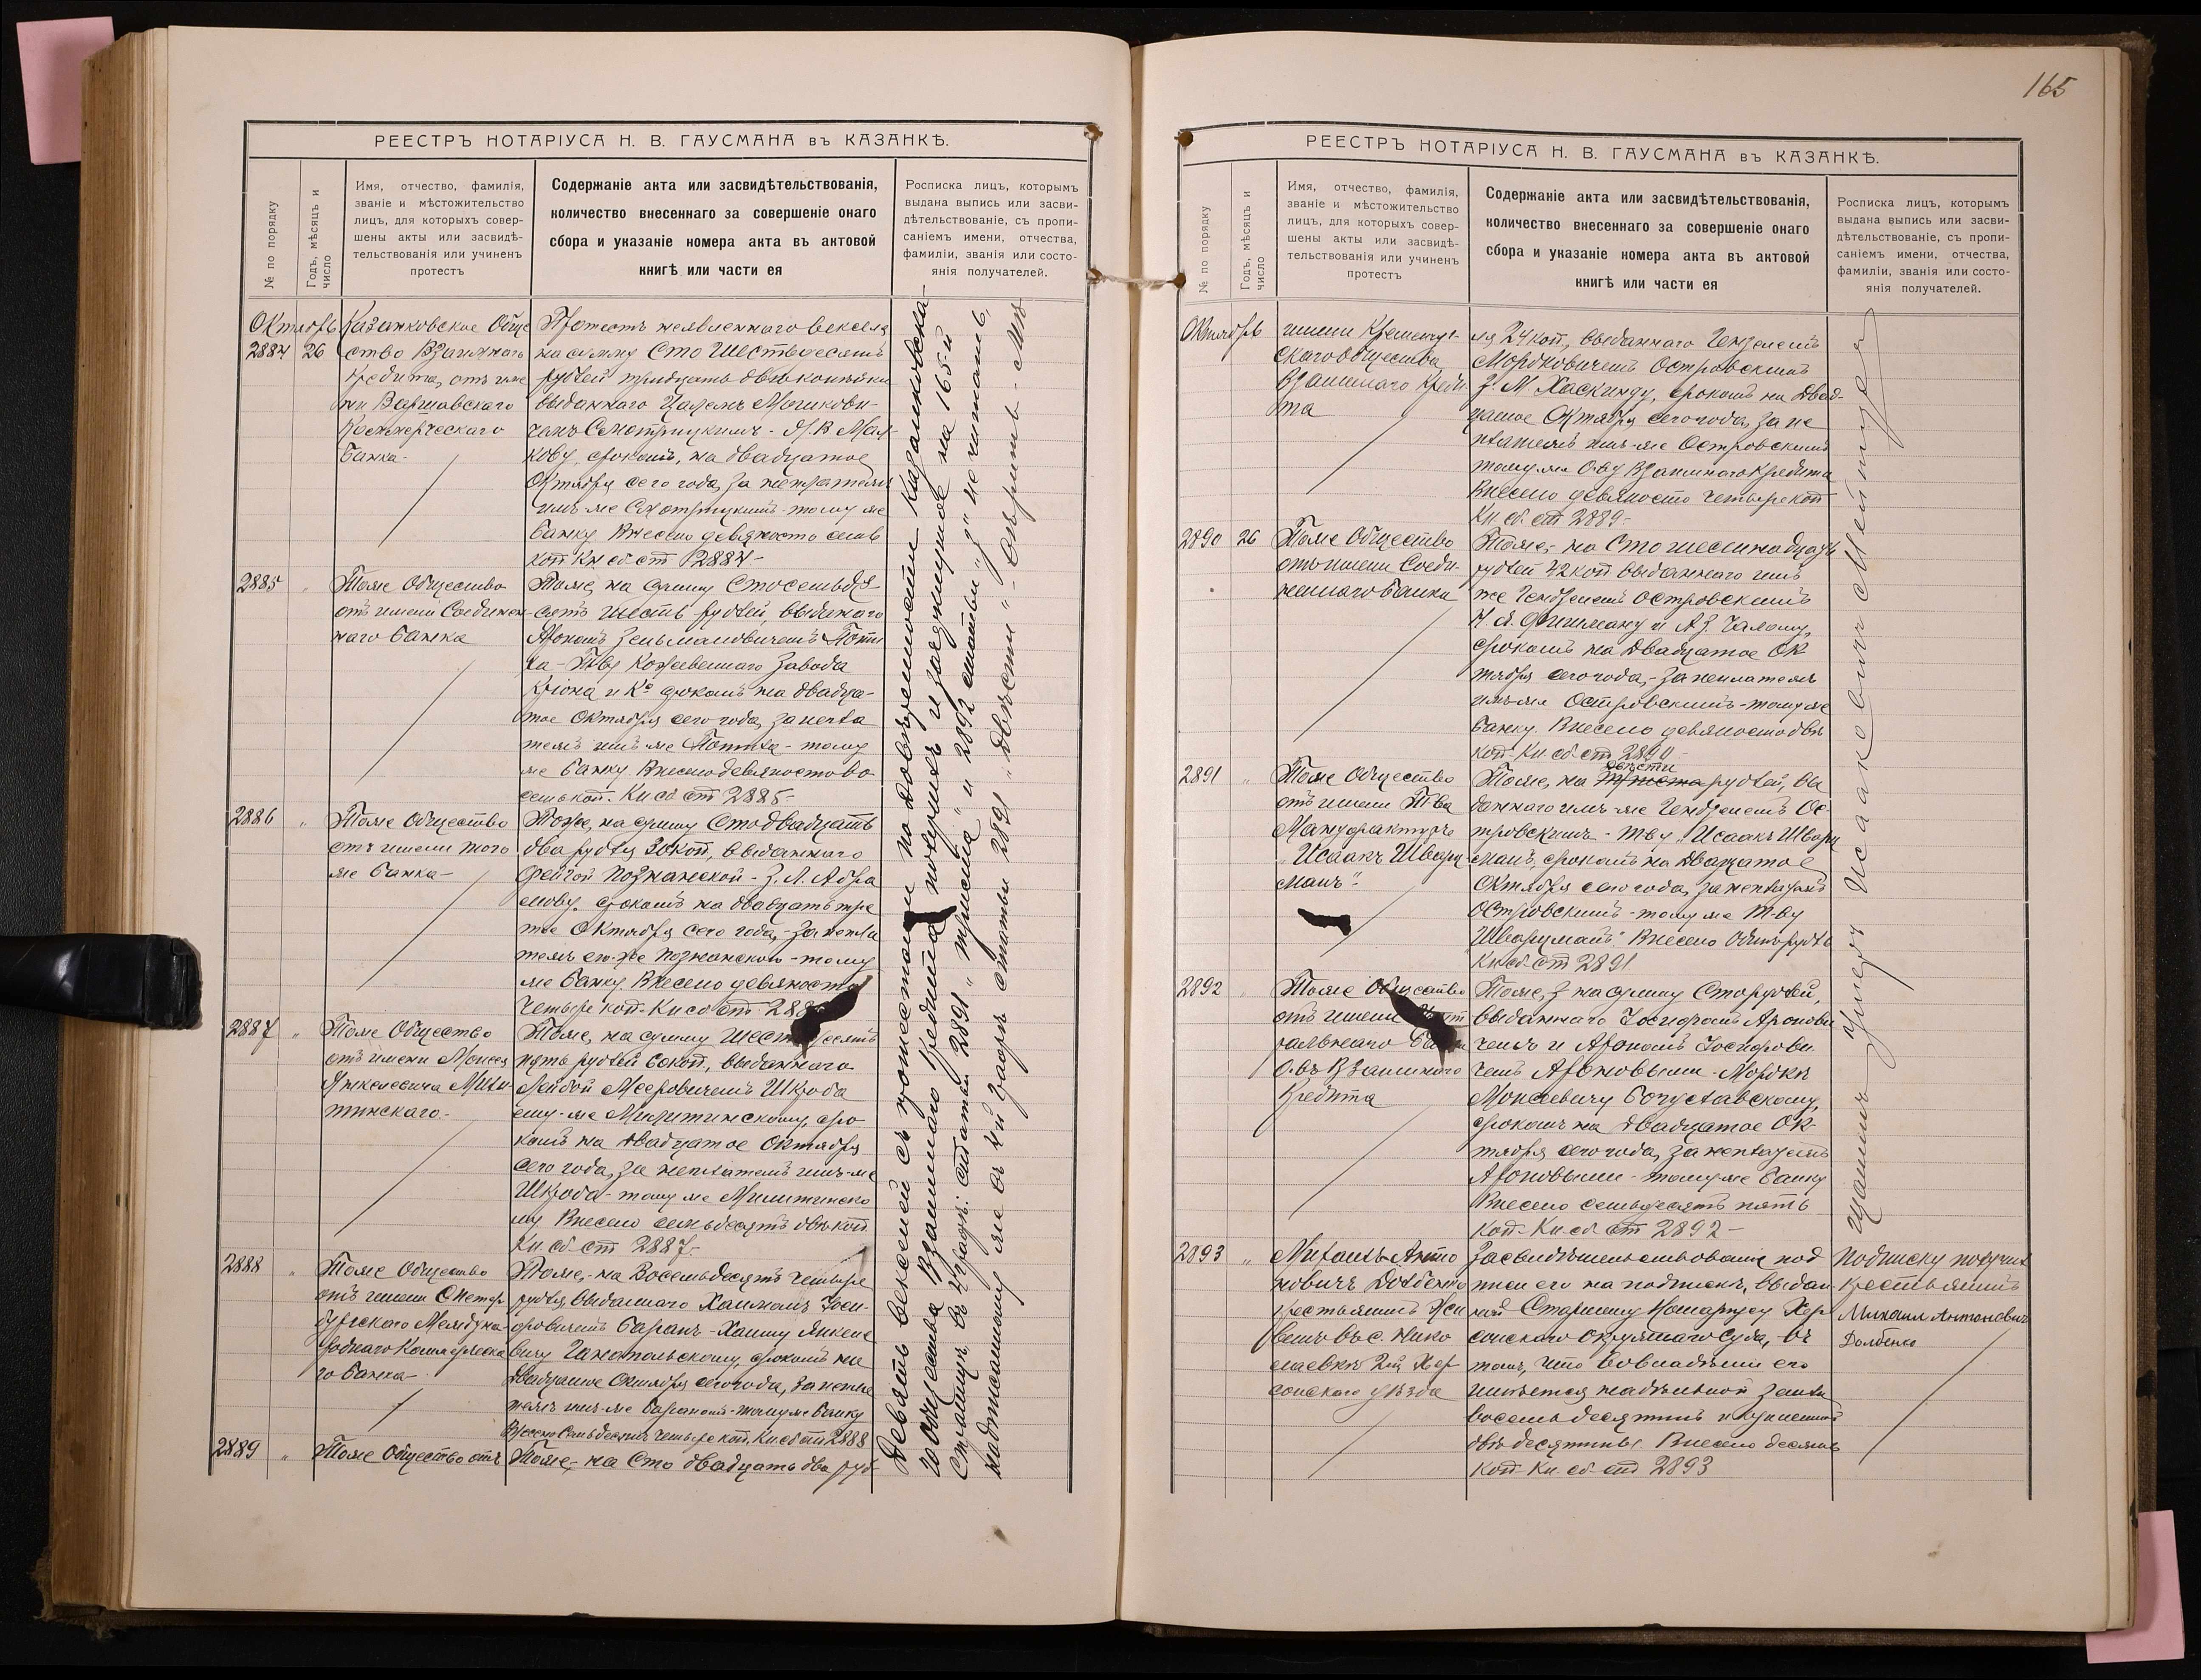 РЕЕСТРЪ НОТАРІУСА Н. В. ГАУСМАНА въ КАЗАНКѢ.
№ по порядку
Годъ, мѣсяцъ и
число
Имя, отчество, фамилія,
званіе и мѣстожительство
лицъ, для которыхъ совер-
шены акты или засвидѣ-
тельствованія или учиненъ
протестъ
Содержаніе акта или засвидѣтельствованія,
количество внесеннаго за совершеніе онаго
сбора и указаніе номера акта въ актовой
книгѣ или части ея
Росписка лицъ, которымъ
выдана выпись или засви-
дѣтельствованіе, съ пропи-
саніемъ имени, отчества,
фамиліи, званія или состо-
янія получателей.
Октябрь
2884 26
Казанковское Обще
ство Взаимнаго
Кредита, отъ име
ни Варшавскаго
Коммерческаго
Банка-
Протестъ неявленнаго векселя
на сумму Сто Шестьдесятъ
рублей тридцать двѣ копѣйки
выданнаго
кову, срокомъ, на двадцатое
Октября сего года, за неплатежъ
имъ-же тому же
банку Внесено девяносто семь
коп Кн сб ст 2884-
2885 "
Тоже Общество
отъ имени Соединен-
наго банка
Тоже, на сумму Стосемьде-
сятъ шесть рублей, выданнаго
Арономъ Зельмановичемъ
Т-ву Кожевеннаго Завода
и Ко срокомъ на двадца-
тое Октября сего года, за непла
тежъ имъ же тому
же банку Внесено девяносто во
семь коп. Кн сб ст 2885-
2886 "
Тоже Общество
отъ имени того
же банка-
Тоже, на сумму Сто двадцать
два рубля 30 коп, выданнаго
Фейгой Познанской - З. Л. Абра
мову, срокомъ на двадцать тре
тье Октября сего года, - за непла
тежъ ею-же Познанской - тому
же банку. Внесено девяносто
четыре коп. Кн сб ст
2887 "
Тоже Общество
отъ имени Моисея
Янкелевича
тинскаго.-
Тоже, на сумму
пять рублей 60 коп., выданнаго
Лейбой Мееровичемъ Шкроба
ему-же сро
комъ на двадцатое Октября
сего года, за неплатежъ имъ-же
Шкроба - тому же
му Внесено семьдесятъ двѣ коп
Кн сб ст 2887.-
2888 "
Тоже Общество
отъ имени СПетер
бургскаго Междуна-
роднаго Коммерческа
го банка
Тоже, - на Восемьдесятъ четыре
рубля выданнаго Хаимомъ Іоси-
фовичемъ Бараномъ - Хаиму Янкеле
вичу срокомъ на
Двадцатое Октября сего года, за непла
тежъ имъ-же Бараномъ - тому же банку
Внесено Семьдесятъ четыре коп. Кн сб ст 2888
2889 "
Тоже Общество отъ
Тоже, - на Сто двадцать два руб-
Девять векселей съ протестами по довѣренности Казанковска-
го Общества Взаимнаго Кредита получилъ и
на 165-й
страницѣ, въ
статьи 2891 "триста" и 2892 статьи "З" не читать,
надписанному же въ статьи 2891 "двѣсти" - вѣрить -
165
РЕЕСТРЪ НОТАРІУСА Н. В. ГАУСМАНА въ КАЗАНКѢ.
№ по порядку
Годъ, мѣсяцъ и
число
Имя, отчество, фамилія,
званіе и мѣстожительство
лицъ, для которыхъ совер-
шены акты или засвидѣ-
тельствованія или учиненъ
протестъ
Содержаніе акта или засвидѣтельствованія,
количество внесеннаго за совершеніе онаго
сбора и указаніе номера акта въ актовой
книгѣ или части ея
Росписка лицъ, которымъ
выдана выпись или засви-
дѣтельствованіе, съ пропи-
саніемъ имени, отчества,
фамиліи, званія или состо-
янія получателей.
Октябрь
имени Кременчуг-
скаго Общества
Взаимнаго Креди-
та
ля 24 коп, выданнаго Гензелемъ
Мордковичемъ Островскимъ
З. М. Хаскинду, срокомъ на Двад-
цатое Октября сего года, за не
платежъ имъ-же Островскимъ
тому же О-ву Взаимнаго Кредита
Внесено девяносто четыре коп
Кн сб. ст 2889-
2890 26
Тоже Общество
отъ имени Соеди-
неннаго банка
Тоже, - на Сто шестнадцать
рублей 42 коп выданнаго имъ
же Островскимъ
Н. Я. Фишману и А. З.
срокомъ на Двадцатое Ок
тября сего года, - за неплатежъ
имъ-же Островскимъ - тому же
банку. Внесено девяносто двѣ
коп. Кн сб. ст 2890-
2891 "
Тоже Общество
отъ имени Т-ва
Мануфактуръ
"Исаакъ Шварц-
манъ".-
двѣсти
Тоже, на триста рублей, вы
даннаго имъ-же Ос-
тровскимъ - Т-ву "Исаакъ Шварц
манъ", срокомъ на Двадцатое
Октября сего года, за неплатежъ
Островскимъ - тому же Т-ву
Шварцманъ" Внесено Одинъ рубль
Кн сб ст 2891
2892 "
Тоже Общество
отъ имени
О-въ Взаимнаго
Кредита
Тоже, З на сумму Сто рублей,
выданнаго Іосифомъ Аронови
чемъ и Арономъ Іосифови
чемъ Ароновыми - Мордкѣ
Моисеевичу Богуславскому,
срокомъ на Двадцатое Ок-
тября сего года, за неплатежъ
Ароновыми - тому же банку
Внесено семьдесятъ пять
коп. Кн сб ст 2892-
2893 "
Михаилъ Анто
новичъ Довбенко
крестьянинъ жи
вемъ въ с. Нико
лаевкѣ 2й Хер
сонскаго уѣзда
Засвидѣтельствованіе под
писи его на подпискѣ, выдан
ной Старшему Нотаріусу Хер
сонскаго Окружнаго Суда, въ
томъ, что во владѣніи его
имѣется надѣльной земли
восемь десятинъ и купленной
двѣ десятины. Внесено десять
коп. Кн. сб. ст 2893
Подписку получилъ
крестьянинъ
Михаил Антонович
Довбенко
Исааковичъ